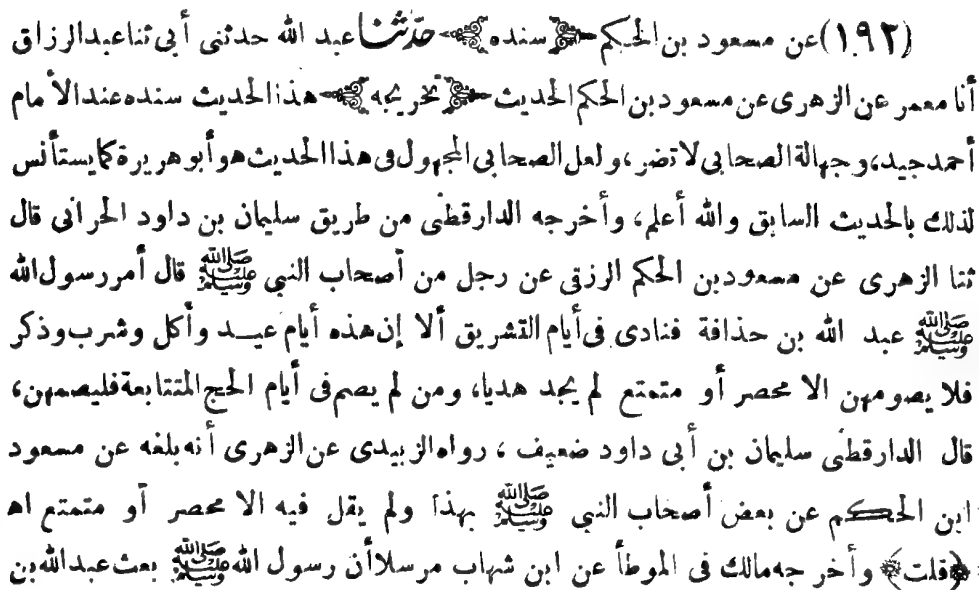 (١٩٢) عن مسعود بن الحكم ﴿سنده﴾ حدثنا عبد الله حدثنى أبى ثنا عبد الرزاق
أنا معمر عن الزهرى عن مسعود بن الحكم الحديث ﴿تخريجه﴾ هذا الحديث سنده عند الأمام
أحمد جيد، وجهالة الصحابى لا تضر، ولعل الصحابى المجهول فى هذا الحديث هو أبو هريرة كما يستأنس
لذلك بالحديث السابق والله أعلم، وأخرجه الدارقطنى من طريق سليمان بن داود الحرانى قال
ثنا الزهرى عن مسعود بن الحكم الزرقى عن رجل من أصحاب النبى ﷺ قال أمر رسول الله
ﷺ عبد الله بن حذافة فنادى فى أيام التشريق ألا إن هذه أيام عيد وأكل وشرب وذكر
فلا يصومهن الا محصر أو متمتع لم يجد هديا، ومن لم يصم فى أيام الحج المتتابعة فليصمهن،
قال الدارقطنى سليمان بن أبى داود ضعيف، رواه الزبيدى عن الزهرى أنه بلغه عن مسعود
ابن الحكم عن بعض أصحاب النبى ﷺ بهذا ولم يقل فيه الا محصر أو متمتع اه
﴿قلت﴾ وأخرجه مالك فى الموطأ عن ابن شهاب مرسلا أن رسول الله ﷺ بعث عبد الله بن